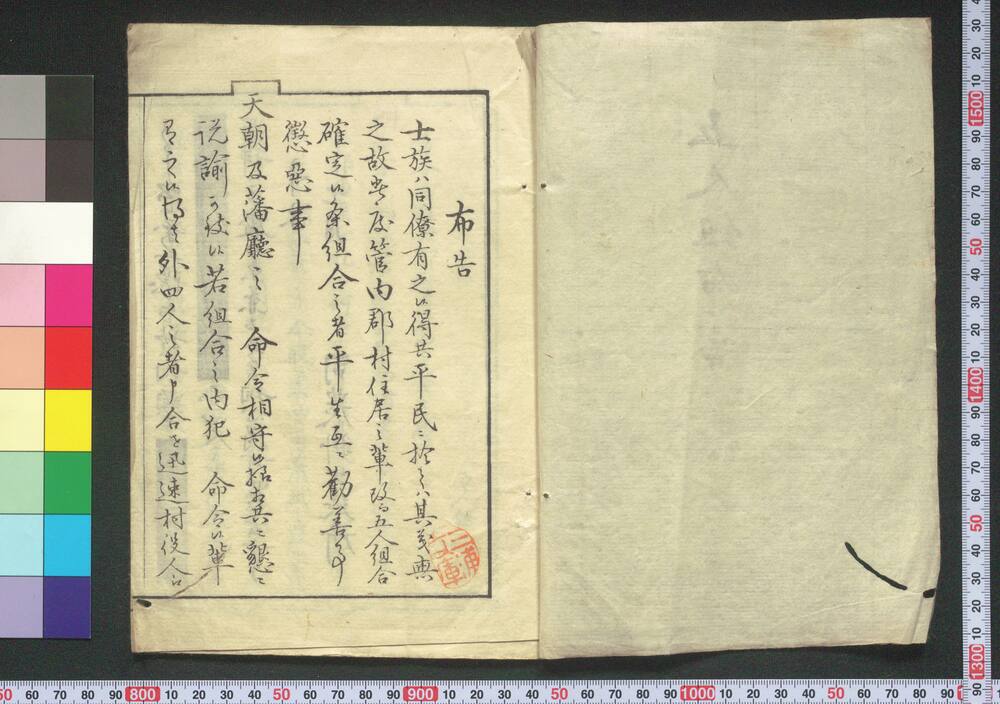 布告
士族ハ同僚有之候得共平民ニ於テハ其義無
之故此度管内郡村住居之輩改而五人組合
確定候条組合之者平生互ニ勧善
懲悪事
天朝及藩廳之命令相守候
説諭可致候若組合之内犯命令候輩
有之候ハヽ外四人之者申合セ迅速村役人
三浦文庫